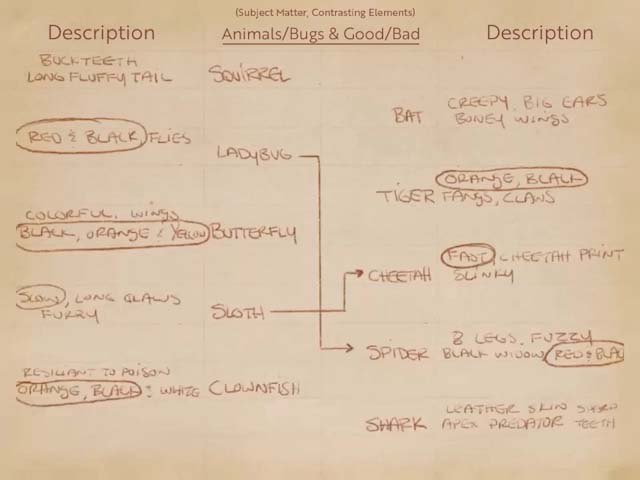 (Subject Matter, Contrasting Elements)
Description Animals/Bugs & Good/Bad Description
BUCKTEETH
LONG FLUFFY TAIL
SQUIRREL
RED & BLACK, FLIES
LADYBUG
COLORFUL, WINGS
BLACK, ORANGE & YELLOW
BUTTERFLY
SLOW, LONG CLAWS
FURRY
SLOTH
RESILIANT TO POISON
ORANGE, BLACK & WHITE
CLOWNFISH
BAT
CREEPY, BIG EARS
BONEY WINGS
TIGER
ORANGE, BLACK
FANGS, CLAWS
CHEETAH
FAST, CHEETAH PRINT
SLINKY
SPIDER
8 LEGS, FUZZY
BLACK WIDOW RED & BLAC
SHARK
LEATHER SKIN SHARP
APEX PREDATOR TEETH